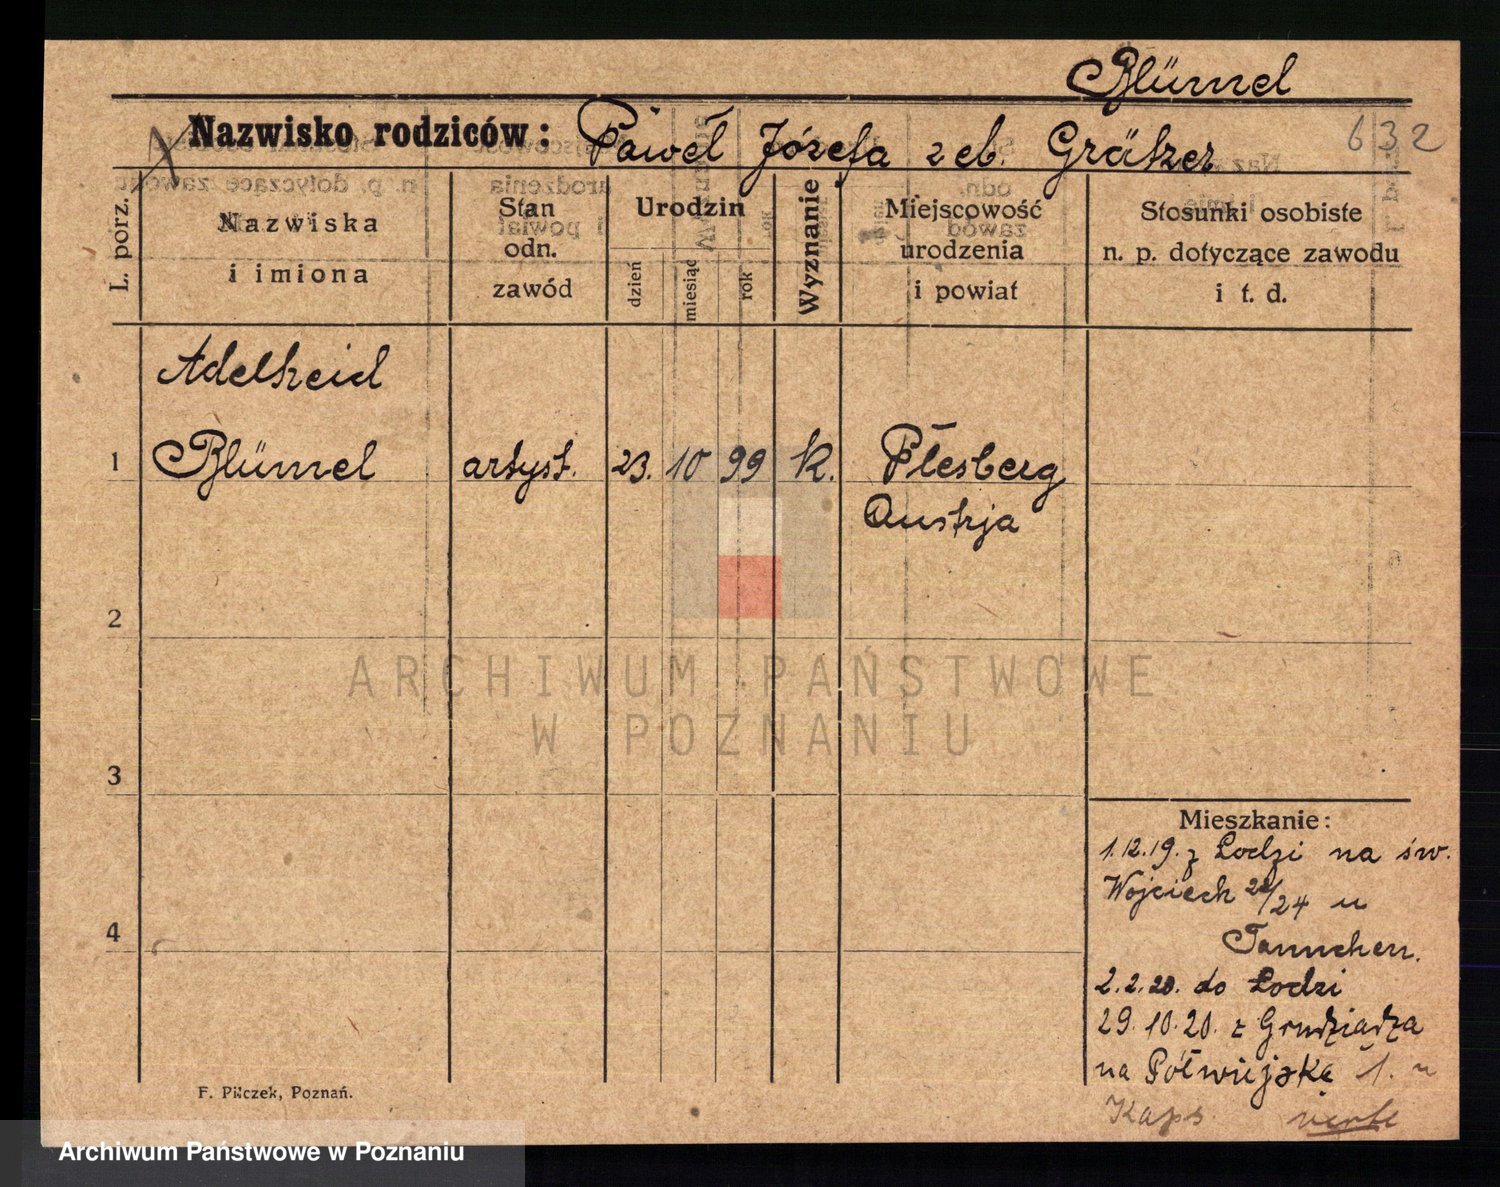 Blümel
Nazwisko rodziców: Paweł Józefa z eb. Grätzer
632
L. porz.
Nazwiska
i imiona
Stan
odn.
zawód
Urodzin
dzień
miesiąc
rok
Wyznanie
Miejscowość
urodzenia
i powiat
Stosunki osobiste
n. p. dotyczące zawodu
i t. d.
Adelheid
1 Blümel artyst. 23. 10 99 k. Płesberg
Austrja
2
3
4
Mieszkanie:
1.12.19. z Łodzi na św.
Wojciech 22/24 u
Tannchen.
2.2.20. do Łodzi
29.10.20. z Grudziądza
na Półwiejską 1. u
Kaps verte
F. Pilczek, Poznań.
ARCHIWUM PAŃSTWOWE
W POZNANIU
Archiwum Państwowe w Poznaniu